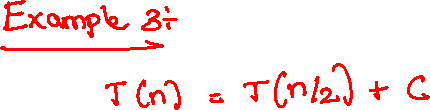 Example 3:
T(n) = T(n/2) + C